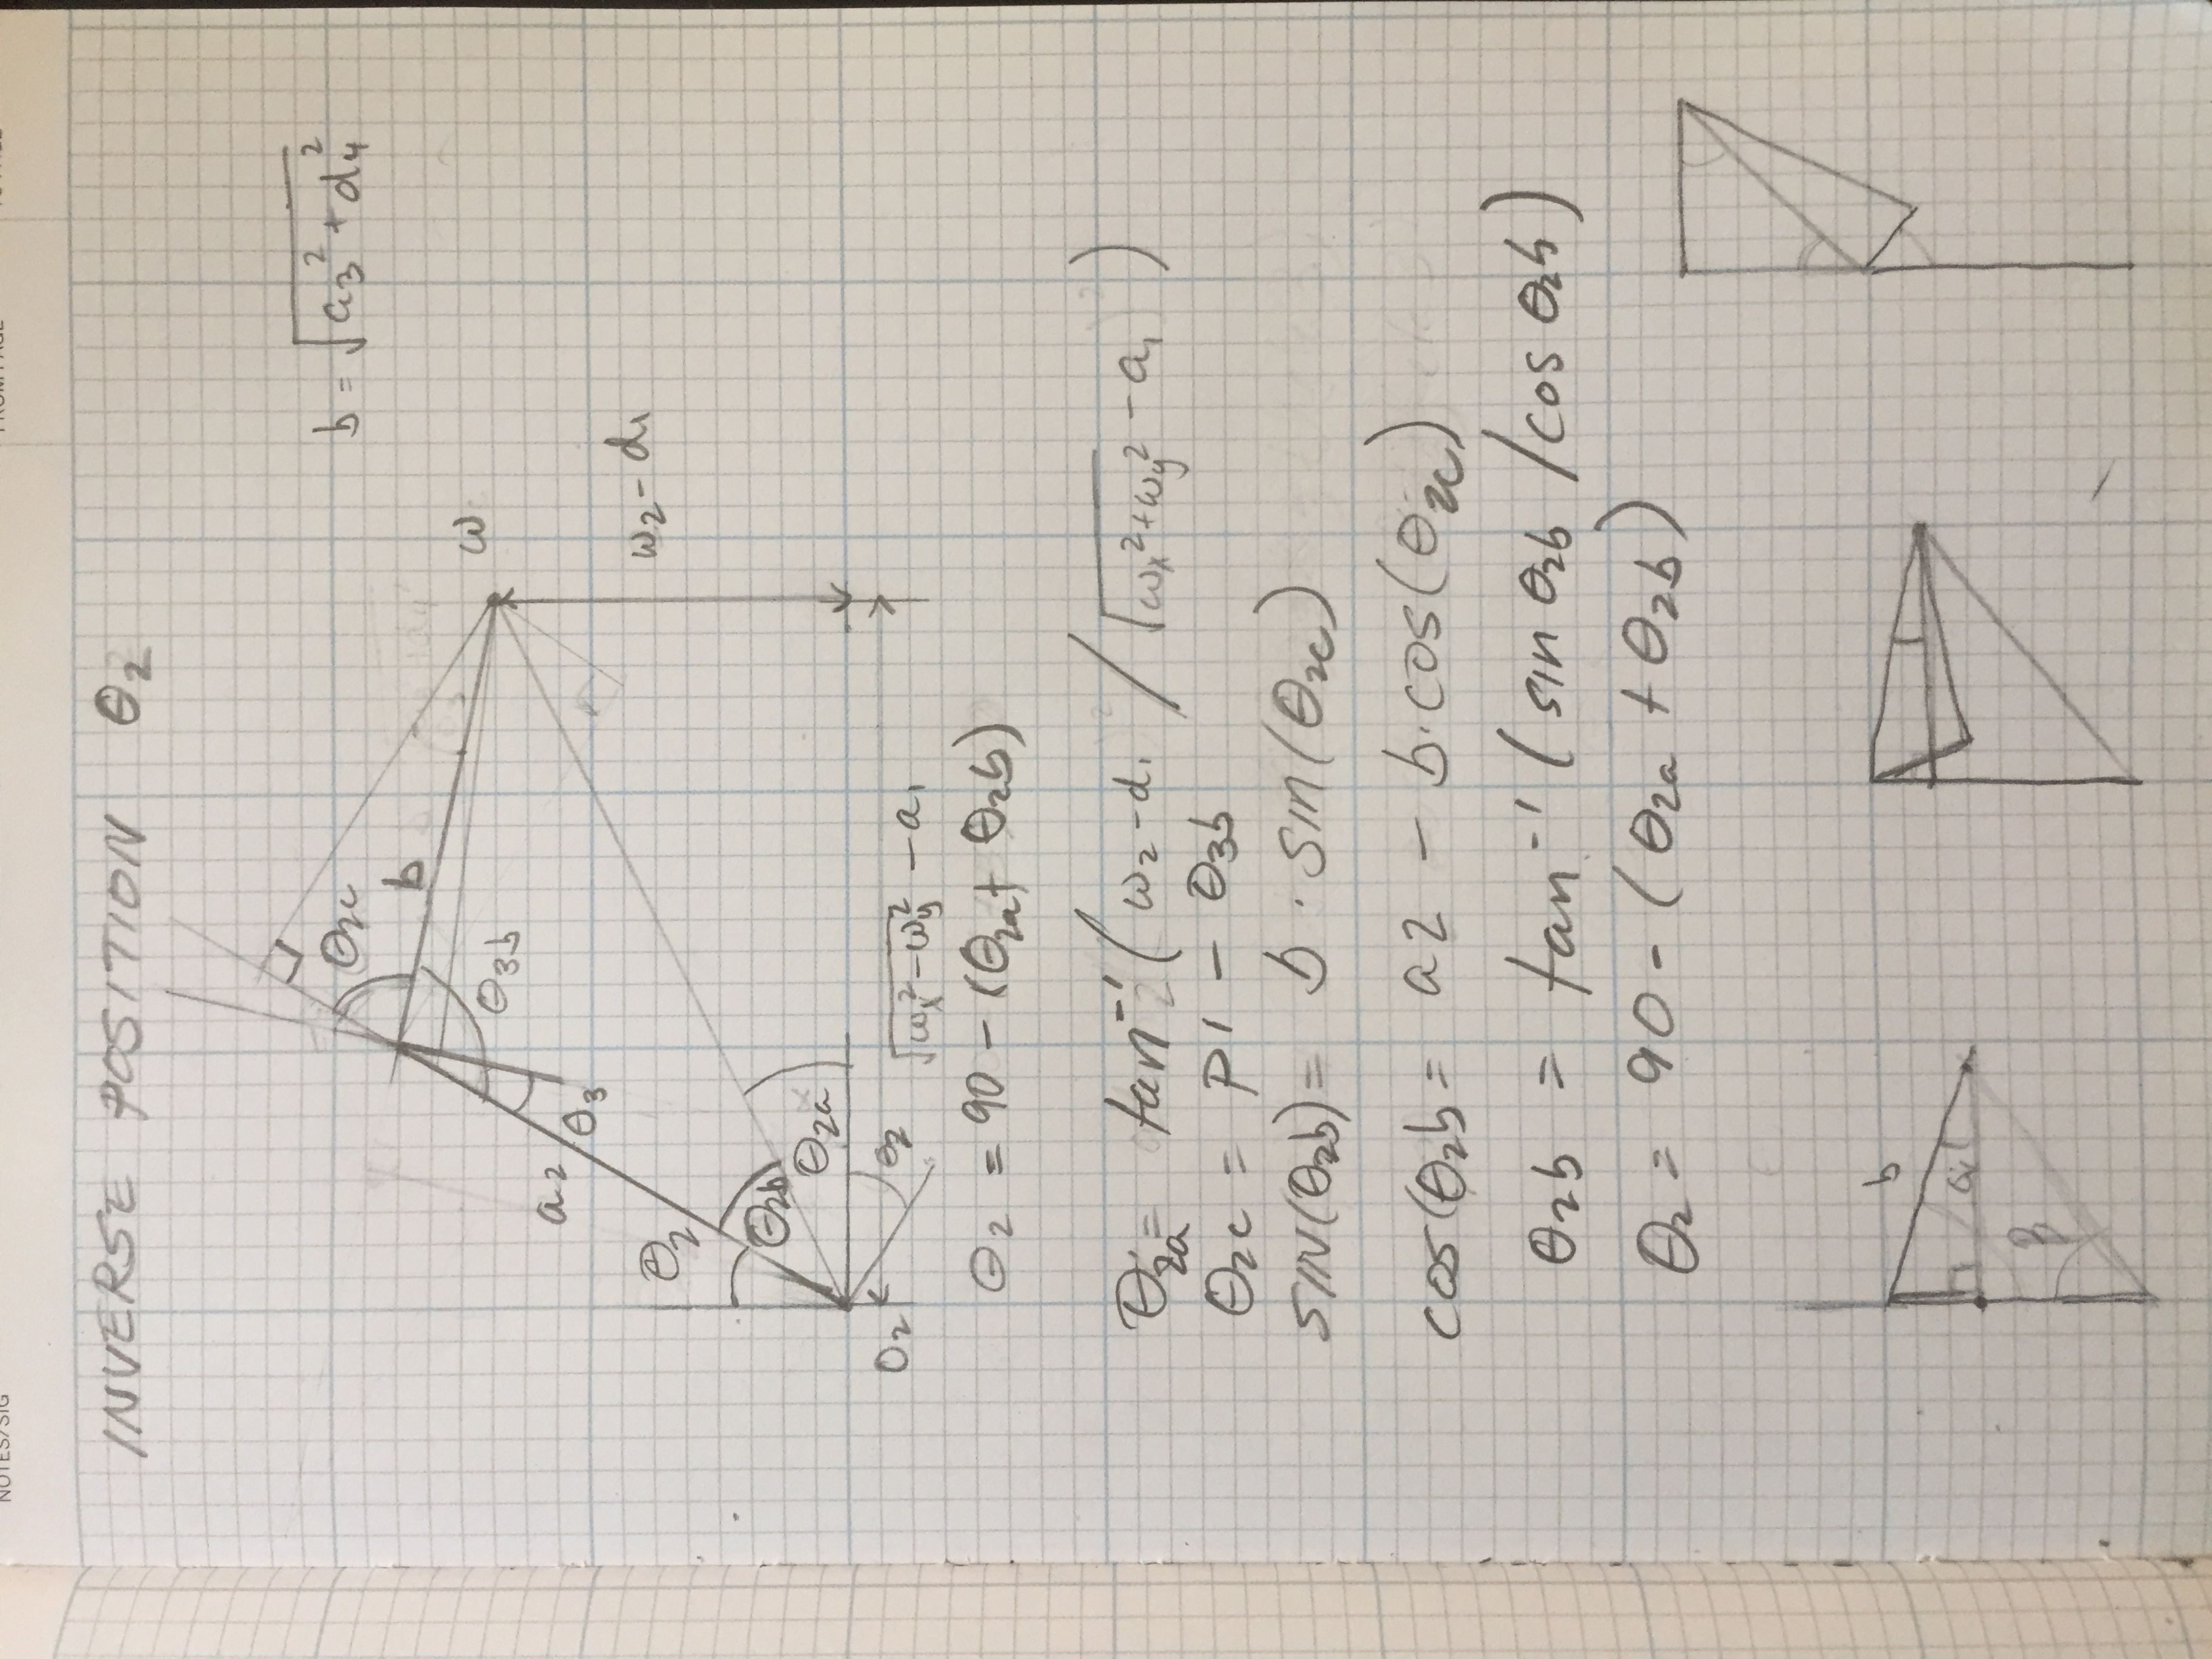 NOTES/SIG
INVERSE POSITION θ₂
θ₂c
b = √(a₃² + d₄²)
b
ω
θ₃b
a₂
θ₃
ω₂ - d₁
θ₂
θ₂b
θ₂a
O₂
θ₂
√(ωx² - ωy²) - a₁
θ₂ = 90 - (θ₂a + θ₂b)
θ₂a = tan⁻¹ ( ω₂ - d₁ / √(ωx² + ωy²) - a₁ )
θ₂c = PI - θ₃b
SIN(θ₂b) = b · sin(θ₂c)
cos(θ₂b = a2 - b·cos(θ₂c)
θ₂b = tan⁻¹ (sin θ₂b / cos θ₂b)
θ₂ = 90 - (θ₂a + θ₂b)
b
β